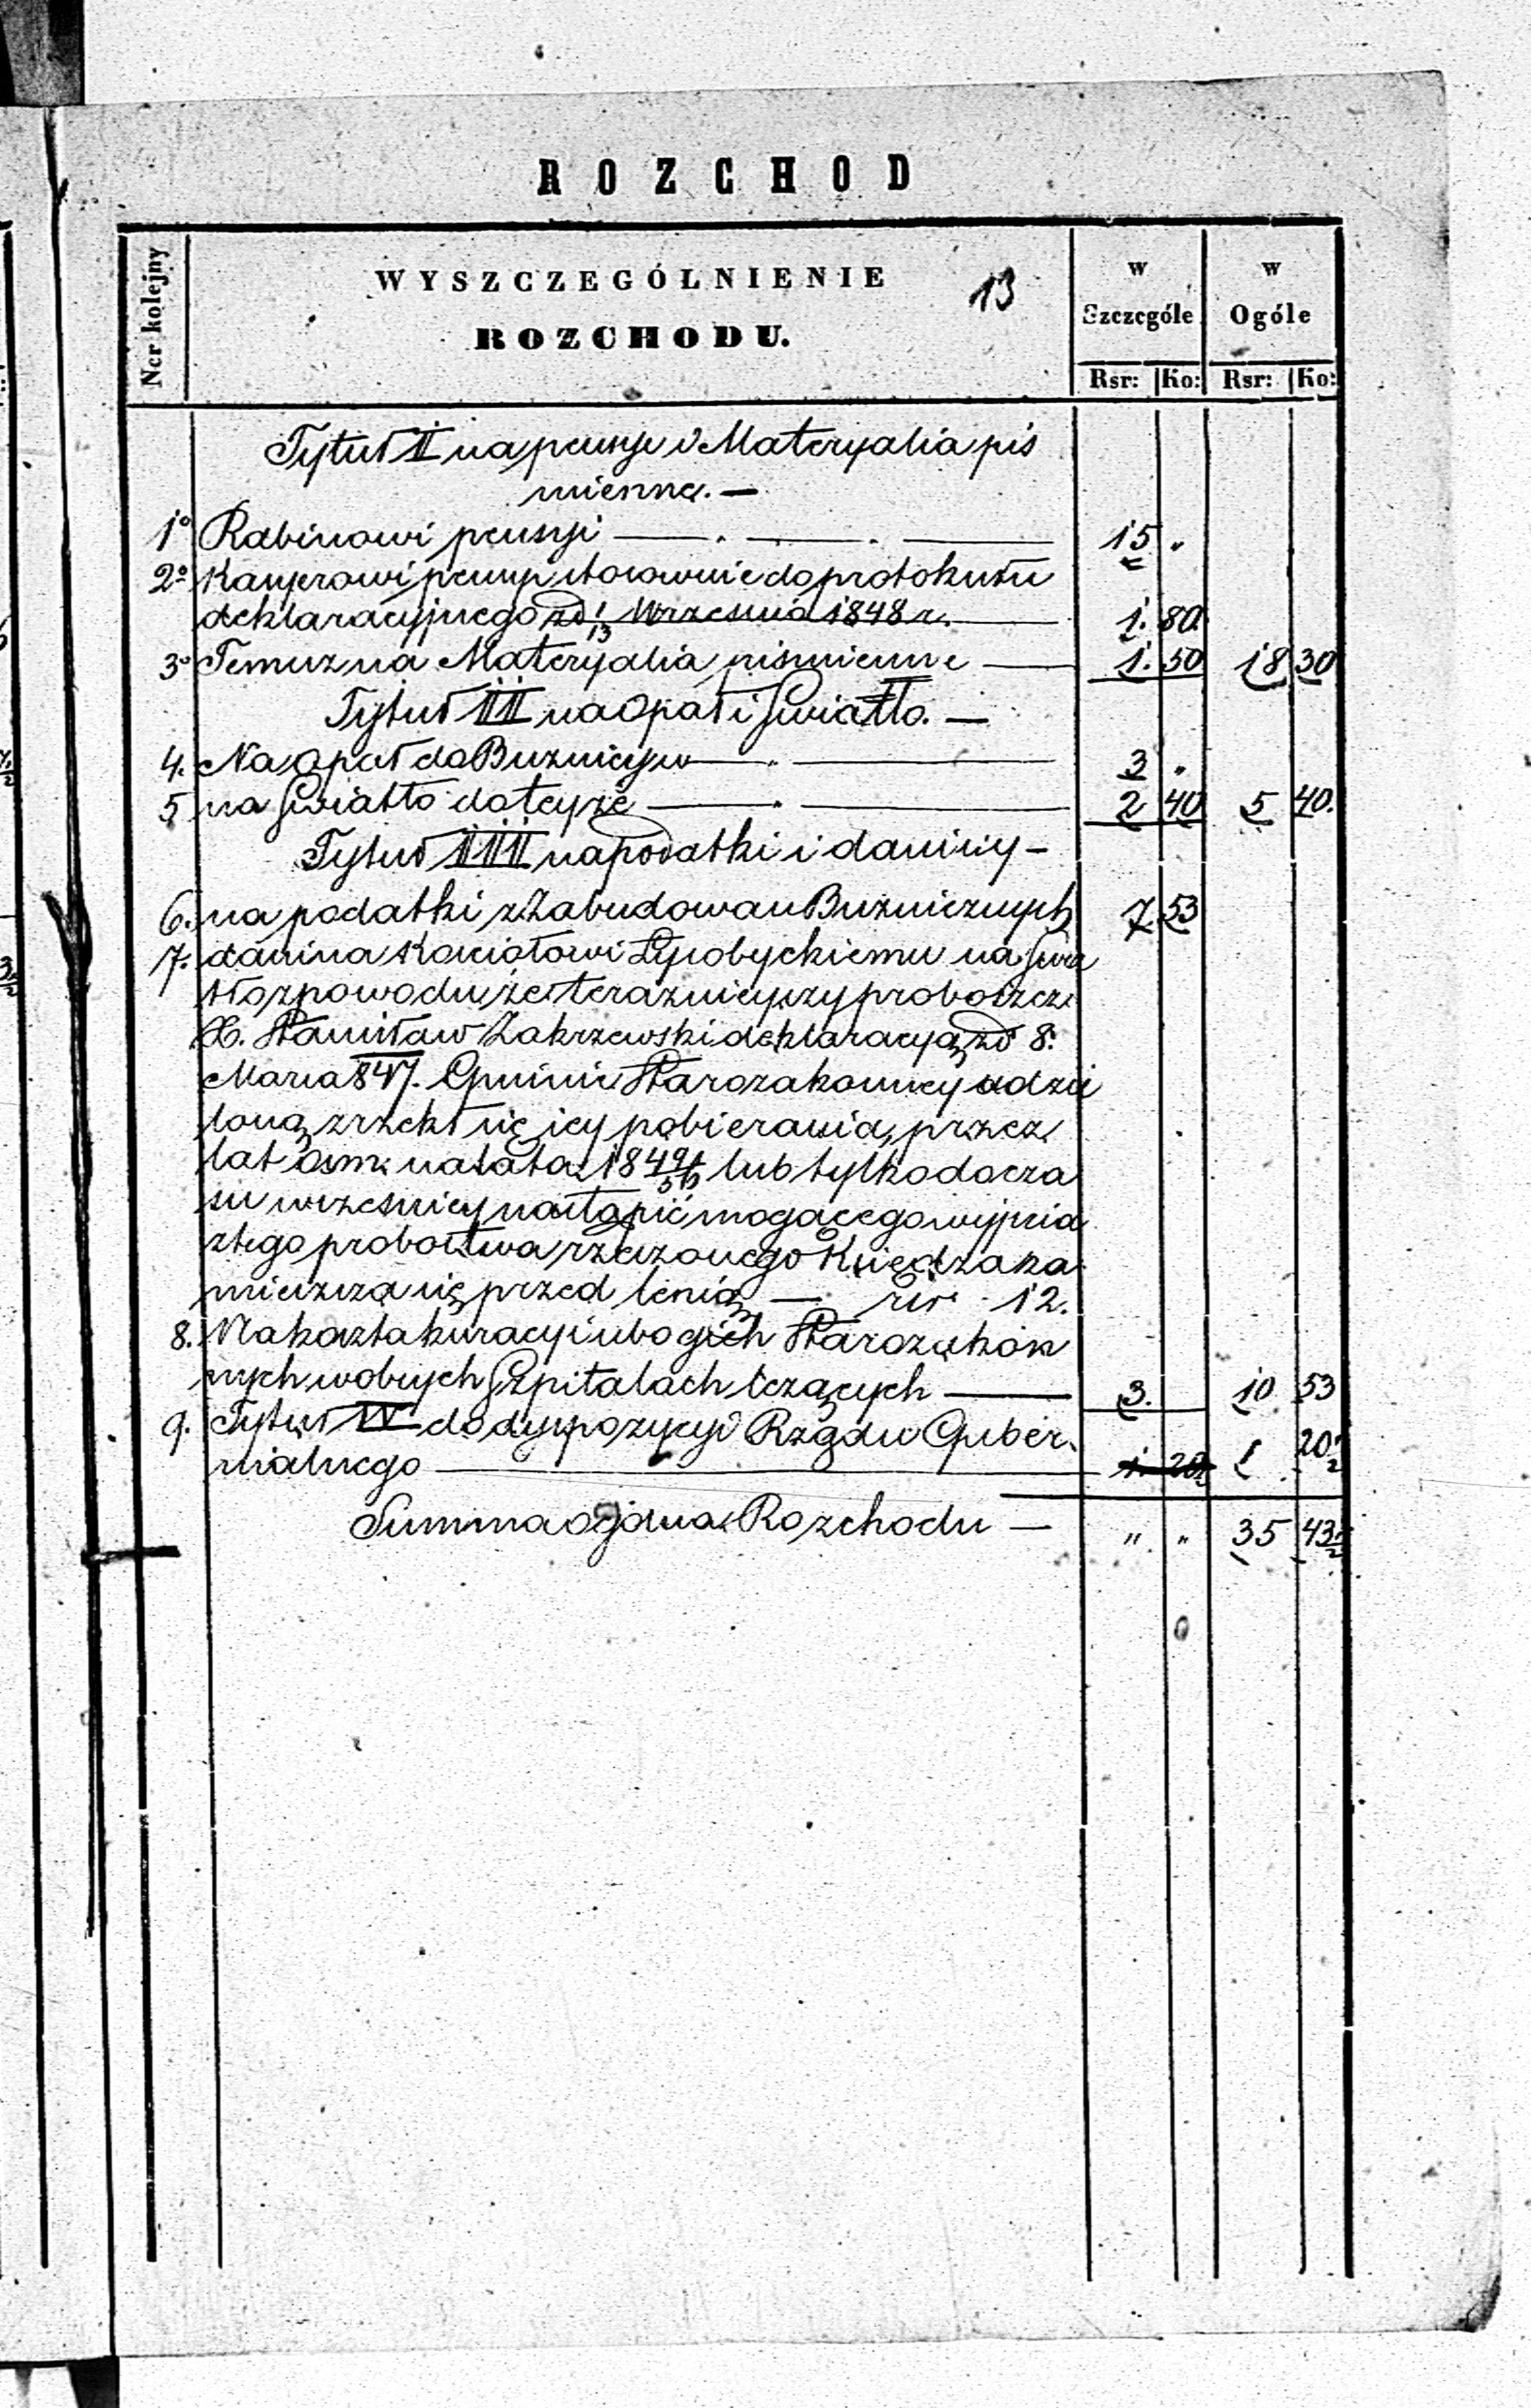 ROZCHOD
Ner kolejny
WYSZCZEGÓLNIENIE
ROZCHODU.
13
w Szczególe
w Ogóle
Rsr: Ko: Rsr: Ko:
Tytuł II na pensye i Materyalia piś
mienne. —
1° Rabinowi pensyi — 15 "
2° Kasyerowi pensyi stosownie do protokułu
deklaracyjnego z d 1/13 Września 1848 r. — 1. 80
3° Temuż na Materyalia piśmienne — 1. 50 18 30
Tytuł III na Opał i Światło. —
4. Na Opał do Bużnicy — 3 "
5 na Światło do tejże — 2 40 5 40.
Tytuł IIII na podatki i daniny —
6. na podatki z Zabudowań Bużnicznych 7 53
7. danina Kościołowi na Świa
tło z powodu że teraźnieyszy proboszcz
X. Stanisław Zakrzewski deklaracyą z d 8.
Marca 847. Gminie Starozakonney udzie
loną zrzekł się iey pobierania, przez
lat na lata 1849/ lub tylko do cza
su wcześniey nastąpić mogącego wyjścia
z tego probostwa rzeczonego Księdza za
mieszcza się przed lenią — rsr 12.
8. Na koszta kuracyi ubogich Starozakon
nych w obcych Szpitalach leżących — 3. 10 53
9. Tytuł IV do dyspozycyi Rządu Guber.
nialnego — 1. 20½ 1 20½
Summa ogólna Rozchodu — " " 35 43½